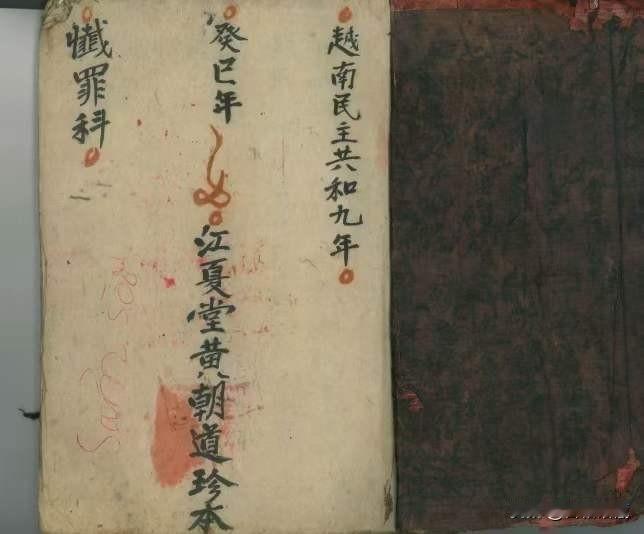 越南民主共和九年
癸巳年
江夏堂黄朝道珍本
懴罪科